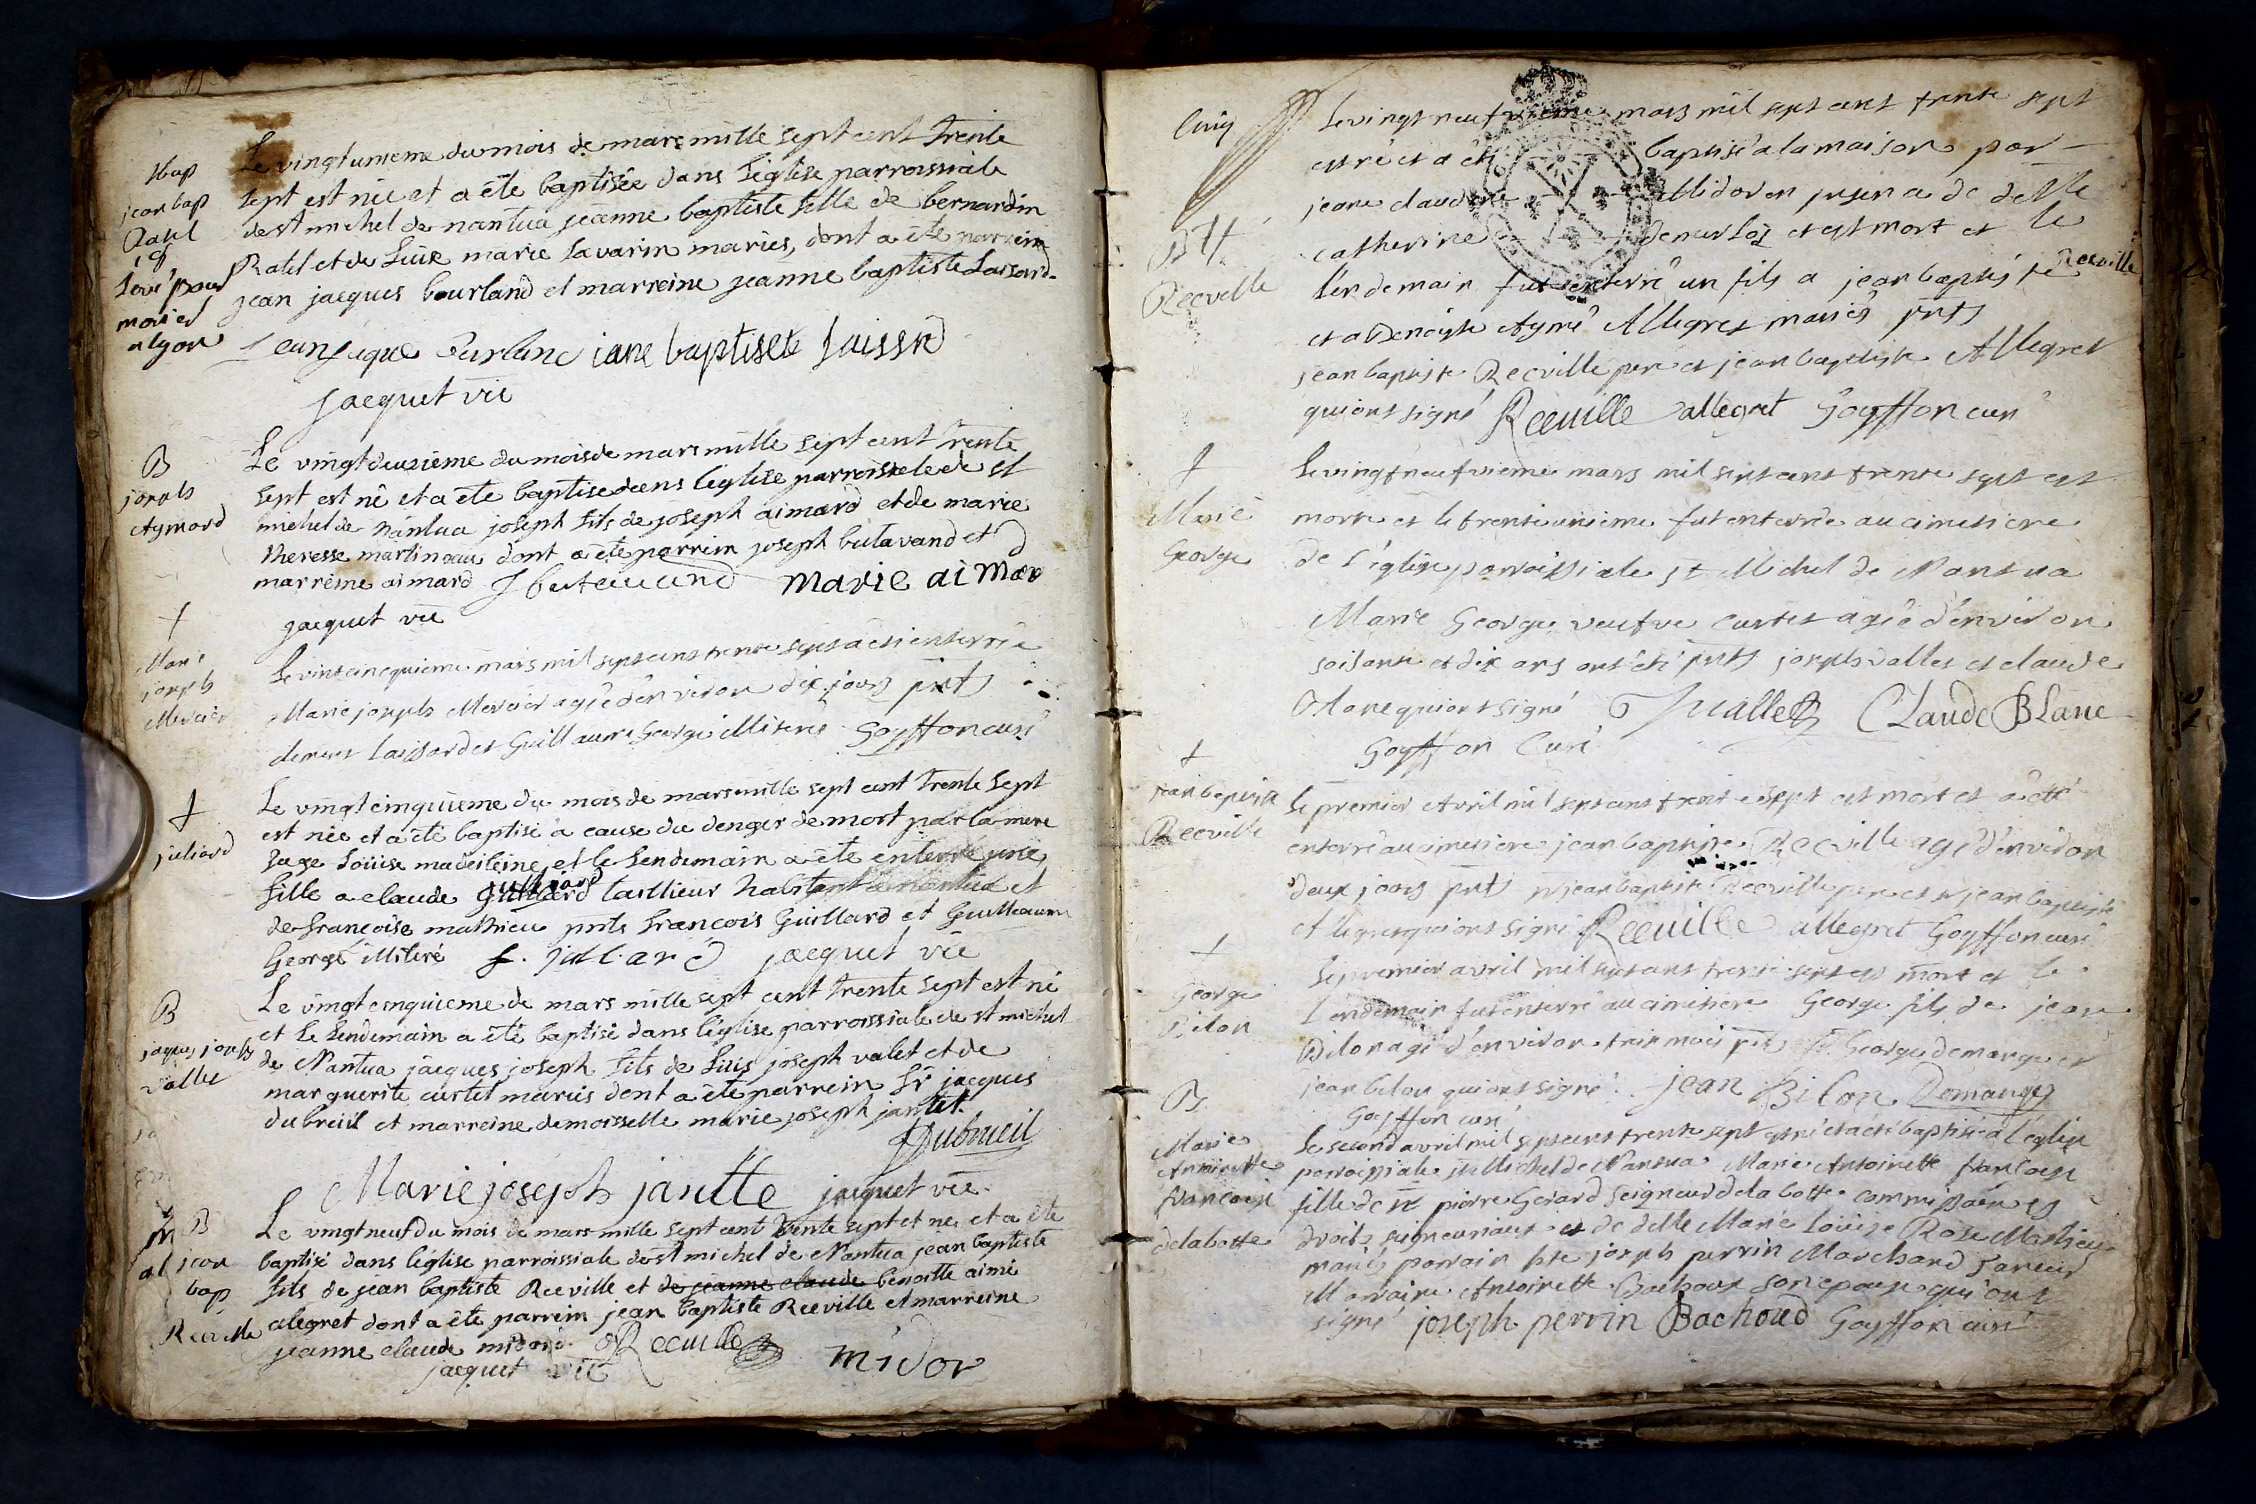 Bap
jean bap
Ratel
Levé pour
marier
a lyon
Le vingtunieme du mois de mars mille sept cent trente
sept est née et a été baptisée dans l'eglise parroissiale
de st michel de nantua jeanne baptiste fille de bernardin
Ratel et de Luise marie Savarin mariés, dont a été parrein
jean jacques bourland et marreine jeanne baptiste Laissard
jane baptisete Laissard
jacquet vic
B
joseph
Aymard
Le vingtdeuzieme du mois de mars mille sept cent trente
sept est né et a été baptisé dans l'eglise parroissiale de st
michel de Nantua joseph fils de joseph aimard et de marie
theresse martinand dont a été parrein joseph butavand et
marreine aimard J butavand marie aimar
jacquet vic
†
Marie
joseph
Mercier
Le vint cinquieme mars mil sept cent trente sept a eté enterrée
Marie joseph Mercier agée d'environ dix jours pnts
Laissard et Guillaume George Miteré Goyffon curé
†
juliard
Le vingt cinquieme du mois de mars mille sept cent trente sept
est née et a été baptisé a cause du denger de mort par la mere
sage Loüise madeileine et le Lendemain a été enterré une
fille a claude Guillard tasllieur habitant a nantua et
de francoise mathieu pnts francois Guillard et Guilleaume
George Miteré f. juliard jacquet vic
B
jaques joseph
vallet
Le vingt cinquieme de mars mille sept cent trente sept est né
et le Lendemain a été baptisé dans l'eglise parroissiale de st michel
de Nantua jacques joseph fils de Luis joseph valet et de
marguerite curtet mariés dont a été parrein Sr jacques
dubreüil et marreine demoisselle marie joseph jantet
Dubrueil
Marie joseph jantte jacquet vic
B
jean
bap
Reeville
Le vingt neuf du mois de mars mille sept cent trente sept et né et a été
baptisé dans l'eglise parroissiale de st michel de Nantua jean baptiste
fils de jean baptiste Reeville et de jeanne claude benoitte aimé
alegret dont a été parrein jean baptiste Reeville et marreine
jeanne claude midor Reeuille midor
jacquet vic
Cinq
Le vingt neufvieme mars mil sept cent trente sept
est né et a été baptisé a la maison par
jeane claudine Midor en presence de delle
catherine et est mort et le
lendemain fut enterré un fils a jean baptiste Reeville
et a Benoiste Aymé Allegret mariés pnts
jean baptiste Reeville pere et jean baptiste Allegret
qui ont signé Reeuille allegret Goyffon curé
Reeville
†
Marie
George
Le vingt neufvieme mars mil sept cent trente sept est
morte et le trente unieme fut enterrée au cimetiere
de l'église parroissiale st Michel de Nantua
Marie George veufve Curtet agée d'environ
soisante et dix ans ont été pnts joseph vallet et claude
Blanc qui ont signé J Vallet Claude Blanc
Goyffon Curé
†
jean baptiste
Reeville
Le premier Avril mil sept cent trente sept est mort et a été
enterré au cimetiere jean baptiste Reeville agé d'environ
deux jours pnts sr jean baptiste Reeville pere et sr jean baptiste
Allegret qui ont signé Reeuille allegret Goyffon curé
†
George
Bilon
Le premier avril mil sept cent trente sept est mort et le
Lendemain fut enterré au cimetiere George fils de jean
Bilon agé d'environ trois mois pnts George demange et
jean bilon qui ont signé jean Bilon Demange
Goyffon curé
B
Marie
Antoinette
francoise
delabotte
Le second avril mil sept cent trente sept est né et a été baptisée a l'eglise
parroissiale st Michel de Nantua Marie Antoinette francoise
fille de sr pierre Gerard seigneur de la botte commissaire es
droits seigneuriaux et de delle Marie Loüise Rose Mathieu
mariés parrain joseph perrin Marchand Taneur
Marraine Antoinette Bachoux son epouse qui ont
signé joseph perrin Bachoud Goyffon curé